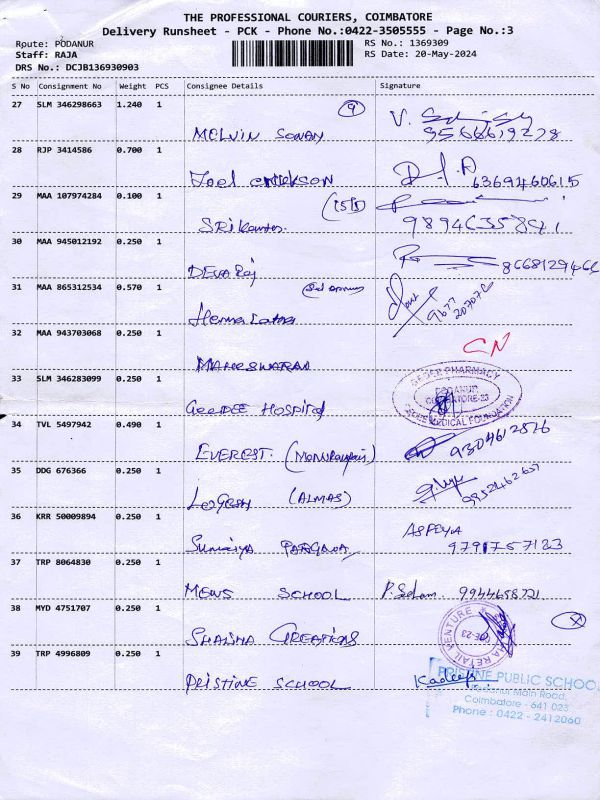 THE PROFESSIONAL COURIERS, COIMBATORE
Delivery Runsheet - PCK - Phone No.:0422-3505555 - Page No.:3
Route: PODANUR
Staff: RAJA
DRS No.: DCJB136930903
RS No.: 1369309
RS Date: 20-May-2024
S No Consignment No Weight PCS Consignee Details Signature
27 SLM 346298663 1.240 1
9
V.
MELVIN
9566619278
28 RJP 3414586 0.700 1
Joel
6369460615
29 MAA 107974284 0.100 1
SRIKanton
9894635841
30 MAA 945012192 0.250 1
DEVA Raj
31 MAA 865312534 0.570 1
Hema Latha
9677 20707
32 MAA 943703068 0.250 1
CN
MAHESWARAN
33 SLM 346283099 0.250 1
GEEDEE HOSPITAL
PHARMACY
PODANUR
COIMBATORE-23
MEDICAL FOUNDATION
34 TVL 5497942 0.490 1
EVEREST.
9304612876
35 DDG 676366 0.250 1
LOGESH (ALMAS)
9952462
36 KRR 50009894 0.250 1
ASPIYA
Sumaiya PARGANA
9791757123
37 TRP 8064830 0.250 1
MEWS SCHOOL
P. Selam 9944658721
38 MYD 4751707 0.250 1
SHALINA CREATIONS
RETAIL VENTURE
39 TRP 4996809 0.250 1
PRISTINE SCHOOL
Kadeep
PRISTINE PUBLIC SCHOOL
Podanur Main Road,
Coimbatore - 641 023
Phone : 0422 - 2412060